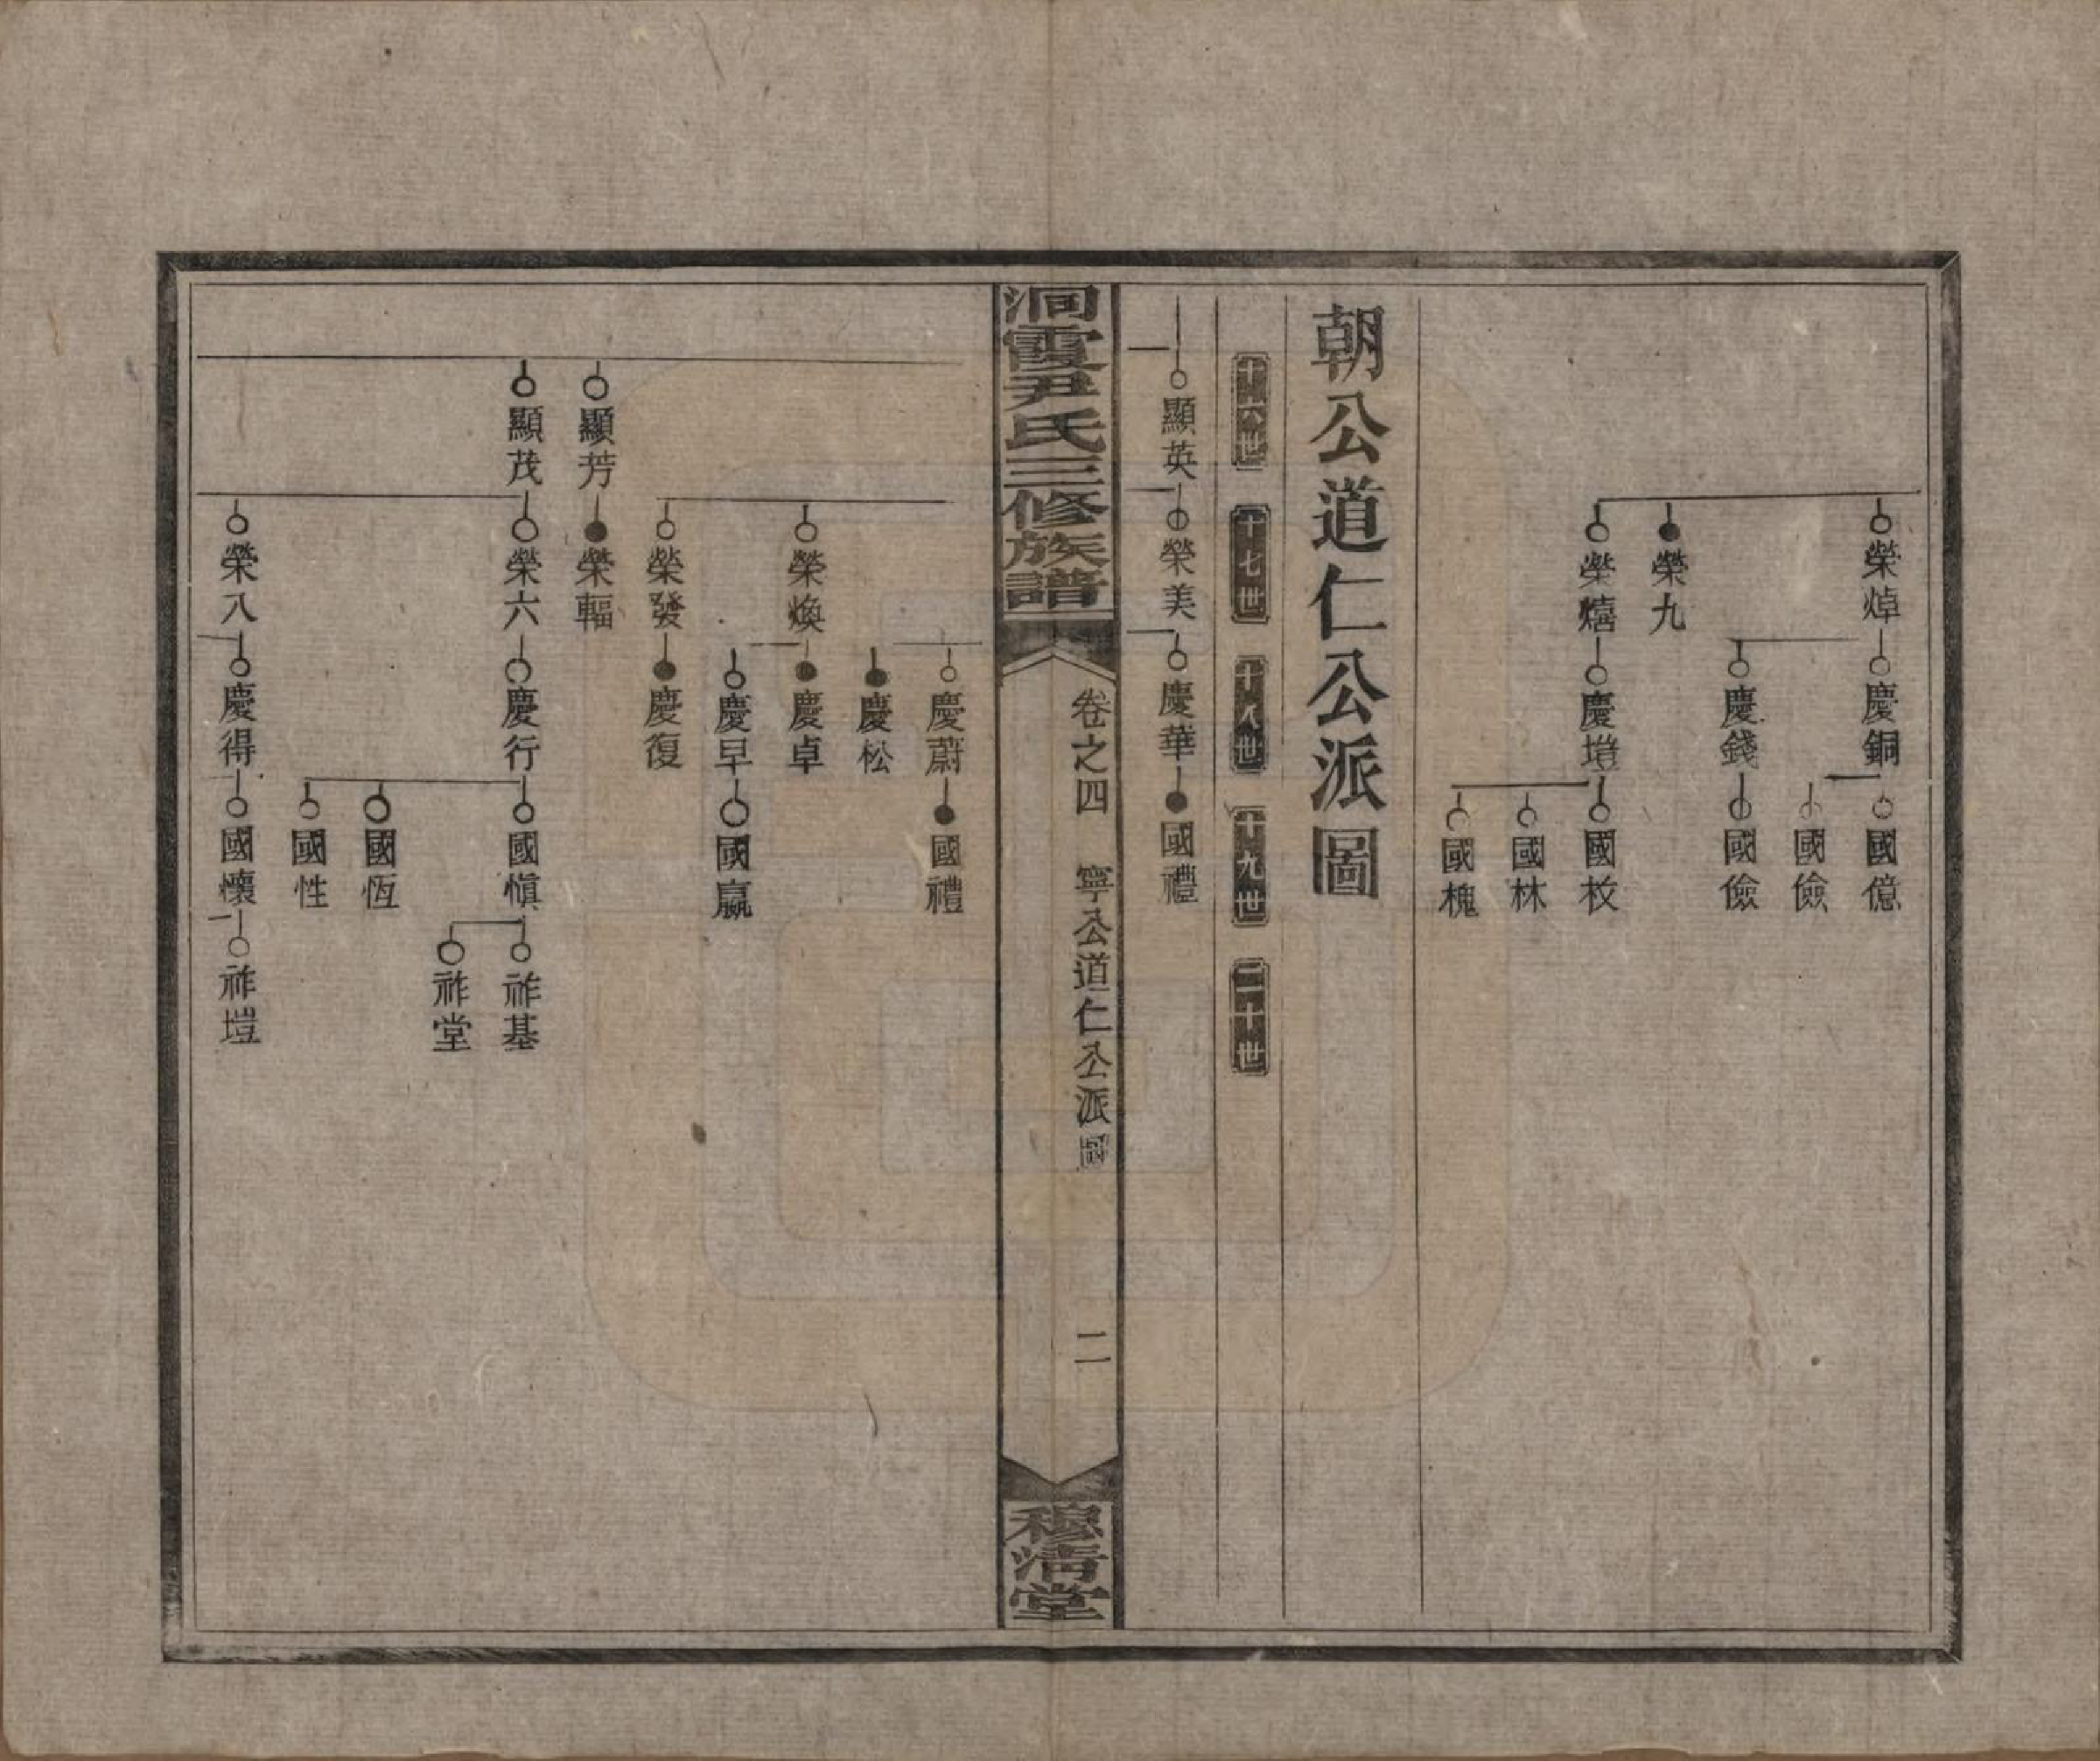 榮焯
慶銅
國億
國儉
慶錢
國儉
榮九
榮熺
慶塏
國枚
國林
國槐
朝公道仁公派圖
十六世 十七世 十八世 十九世 二十世
顯英
榮美
慶華
國禮
洞霞尹氏三修族譜
卷之四 寧公道仁公派圖
二
穆清堂
慶蔚
國禮
慶松
榮煥
慶卓
慶早
國嬴
榮發
慶復
顯芳
榮輻
顯茂
榮六
慶行
國愼
祚基
祚堂
國恆
國性
榮八
慶得
國懷
祚塏